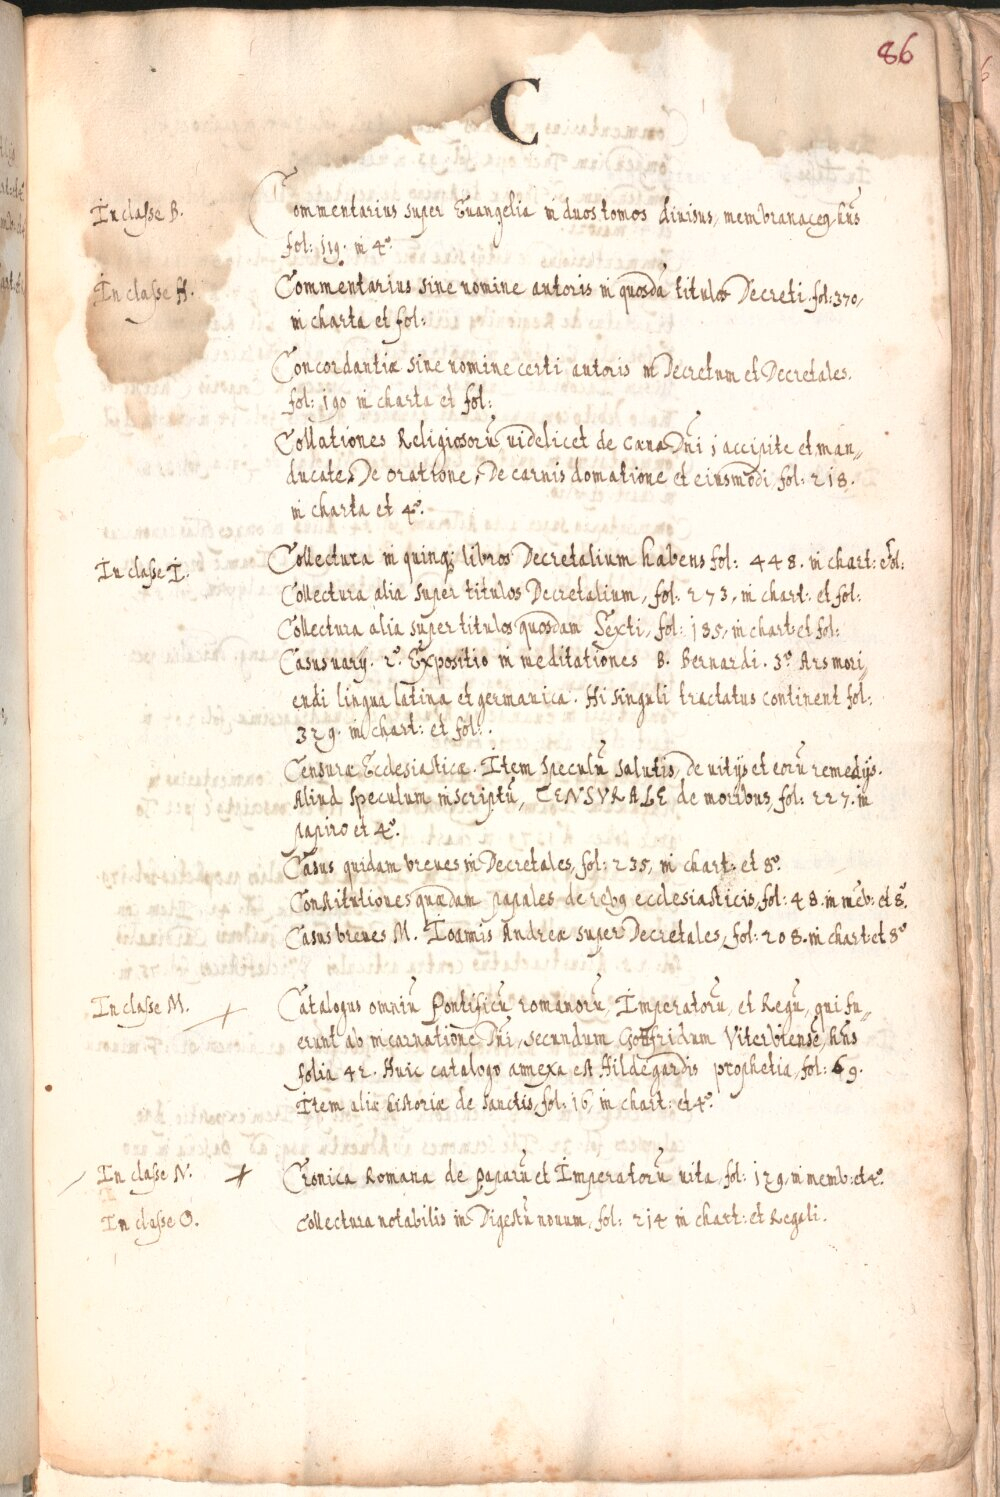 86
C
In classe B. Commentarius super Euangelia in duos tomos diuisus, membranaceꝯ, hñs
fol: 119. in 4º.
In classe H. Commentarius sine nomine autoris in quosdã titulos Decreti. fol: 370,
in charta et fol:
Concordantiæ sine nomine certi autoris in Decretum et Decretales.
fol: 190 in charta et fol:
Collationes Religiosorũ, uidelicet de Cæna Dñi; accipite et man„
ducate, De oratione, De carnis domatione et eiusmodi fol: 218.
in charta et 4º.
In classe I. Collectura in quinqꝫ libros Decretalium habens fol: 448. in chart: et fol:
Collectura alia super titulos Decretalium, fol: 273, in chart: et fol:
Collectura alia super titulos quosdam Sexti, fol: 185, in chart: et fol:
Casus uarij. 2º. Expositio in meditationes B. Bernardi. 3º Ars mori„
endi lingua latina et germanica. Hi singuli tractatus continent fol:
329. in chart: et fol:.
Censuræ Ecclesiasticæ. Item Speculũ salutis, de uitijs et eorũ remedijs.
Aliud Speculum inscriptũ, CENSVRALE de moribus, fol: 227. in
papiro et 4º.
Casus quidam breues in Decretales, fol: 235, in chart: et 8º.
Constitutiones quædam papales de rebꝯ ecclesiasticis, fol: 48. in mẽb: et 8º.
Casus breues M. Ioannis Andreæ super Decretales, fol: 208. in chart: et 8º
In classe M. + Catalogus omniũ Pontificũ romanorũ, Imperatorũ, et Regũ, qui fu„
erunt ab incarnatione Dñi, secundum Gotfridum Viterbiensẽ, hñs
folia 42. Huic catalogo annexa est Hildegardis prophetia, fol: 69.
Item aliæ historiæ de sanctis, fol: 16, in chart: et 4º.
In classe N. + Cronica Romana de paparũ et Imperatorũ uita, fol: 129, in memb: et 4º.
In classe O. Collectura notabilis in Digestũ nouum, fol: 214 in chart: et Regali.